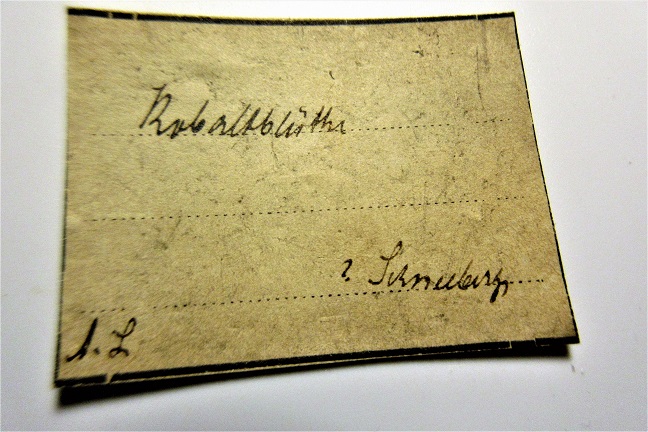 Kobaltblüthe
? Schneeberg,
A. L